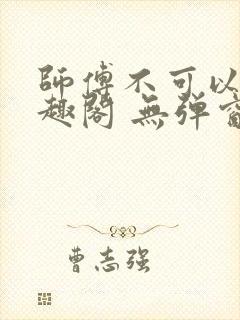 師傅不可以
趣閣 無弹窗
曹志强